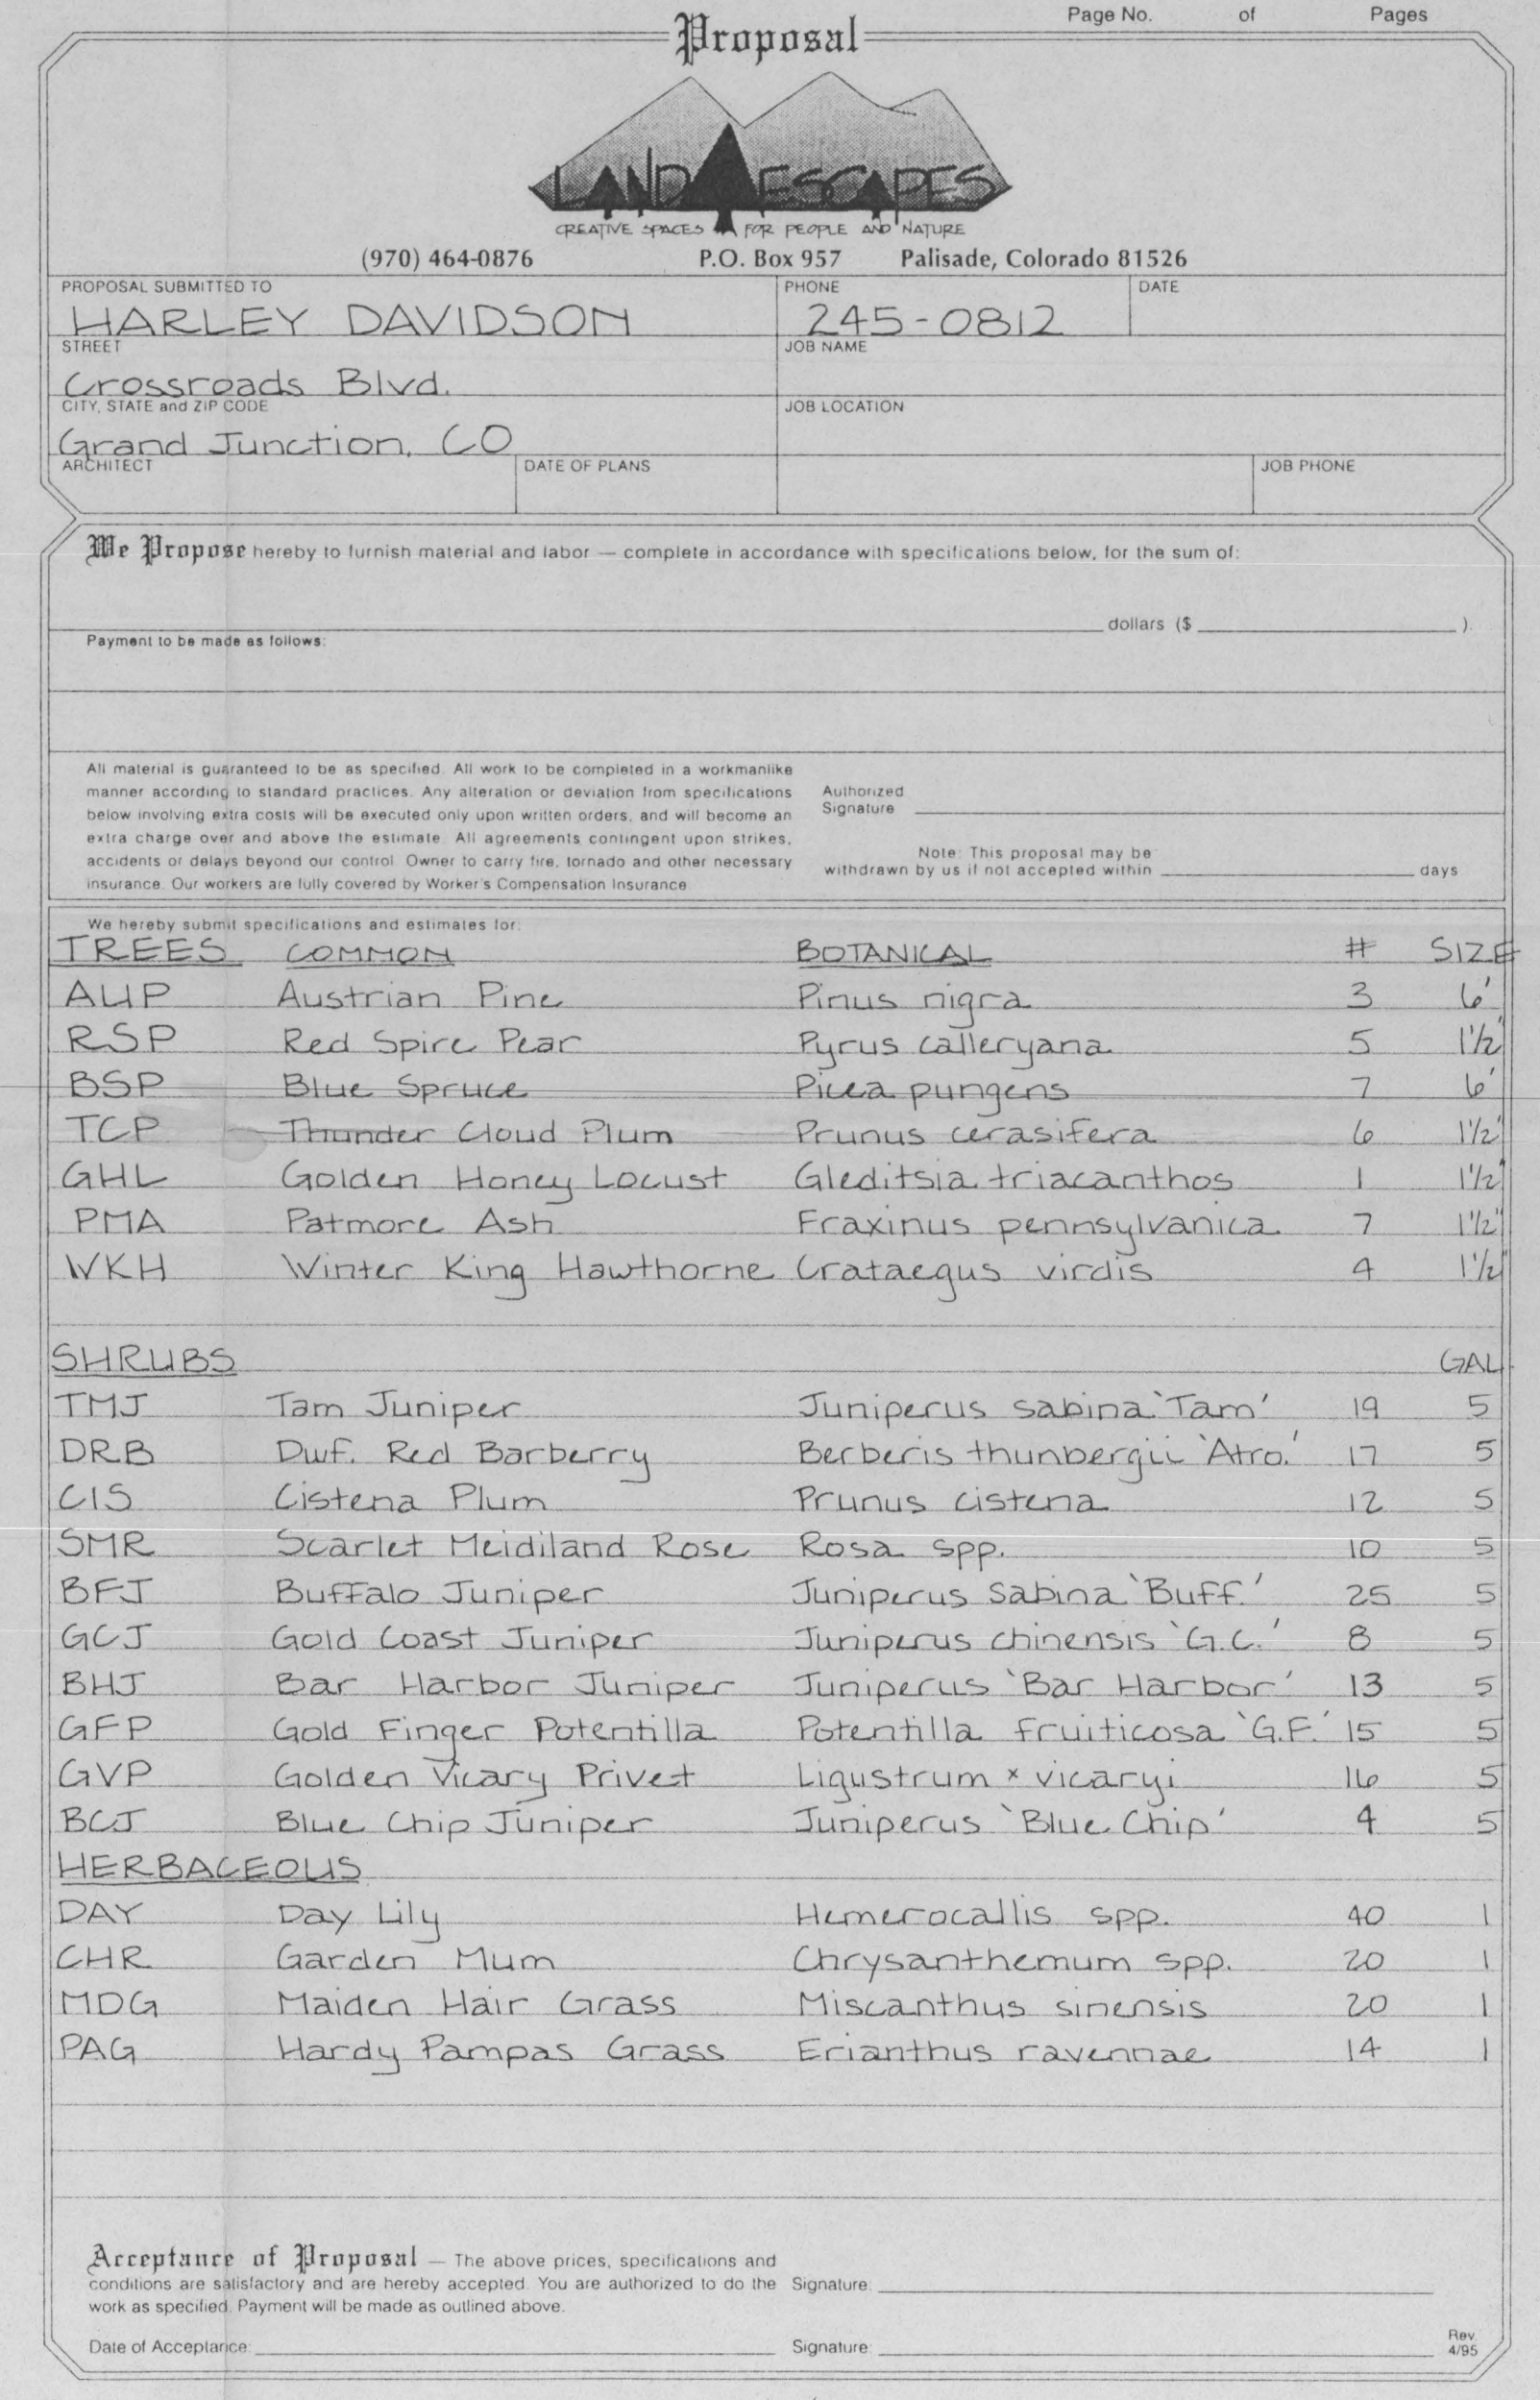 Page No. of Pages
Proposal
LAND ESCAPES
CREATIVE SPACES FOR PEOPLE AND NATURE
(970) 464-0876 P.O. Box 957 Palisade, Colorado 81526
PROPOSAL SUBMITTED TO PHONE DATE
HARLEY DAVIDSON 245-0812
STREET JOB NAME
Crossroads Blvd.
CITY, STATE and ZIP CODE JOB LOCATION
Grand Junction, CO
ARCHITECT DATE OF PLANS JOB PHONE
We Propose hereby to furnish material and labor — complete in accordance with specifications below, for the sum of:
dollars ($ ).
Payment to be made as follows:
All material is guaranteed to be as specified. All work to be completed in a workmanlike
manner according to standard practices. Any alteration or deviation from specifications
below involving extra costs will be executed only upon written orders, and will become an
extra charge over and above the estimate. All agreements contingent upon strikes,
accidents or delays beyond our control. Owner to carry fire, tornado and other necessary
insurance. Our workers are fully covered by Worker's Compensation Insurance
Authorized
Signature
Note: This proposal may be
withdrawn by us if not accepted within days
We hereby submit specifications and estimates for:
TREES COMMON BOTANICAL # SIZE
AUP Austrian Pine Pinus nigra 3 6'
RSP Red Spire Pear Pyrus calleryana 5 1½"
BSP Blue Spruce Picea pungens 7 6'
TCP Thunder Cloud Plum Prunus cerasifera 6 1½"
GHL Golden Honey Locust Gleditsia triacanthos 1 1½"
PMA Patmore Ash Fraxinus pennsylvanica 7 1½"
WKH Winter King Hawthorne Crataegus virdis 4 1½"
SHRUBS GAL
TMJ Tam Juniper Juniperus sabina 'Tam' 19 5
DRB Dwf. Red Barberry Berberis thunbergii 'Atro.' 17 5
CIS Cistena Plum Prunus cistena 12 5
SMR Scarlet Meidiland Rose Rosa spp. 10 5
BFJ Buffalo Juniper Juniperus Sabina 'Buff.' 25 5
GCJ Gold Coast Juniper Juniperus chinensis 'G.C.' 8 5
BHJ Bar Harbor Juniper Juniperus 'Bar Harbor' 13 5
GFP Gold Finger Potentilla Potentilla fruiticosa 'G.F.' 15 5
GVP Golden Vicary Privet Ligustrum x vicaryi 16 5
BCJ Blue Chip Juniper Juniperus 'Blue Chip' 4 5
HERBACEOUS
DAY Day Lily Hemerocallis spp. 40 1
CHR Garden Mum Chrysanthemum spp. 20 1
MDG Maiden Hair Grass Miscanthus sinensis 20 1
PAG Hardy Pampas Grass Erianthus ravennae 14 1
Acceptance of Proposal — The above prices, specifications and
conditions are satisfactory and are hereby accepted. You are authorized to do the Signature:
work as specified. Payment will be made as outlined above.
Date of Acceptance: Signature:
Rev.
4/95